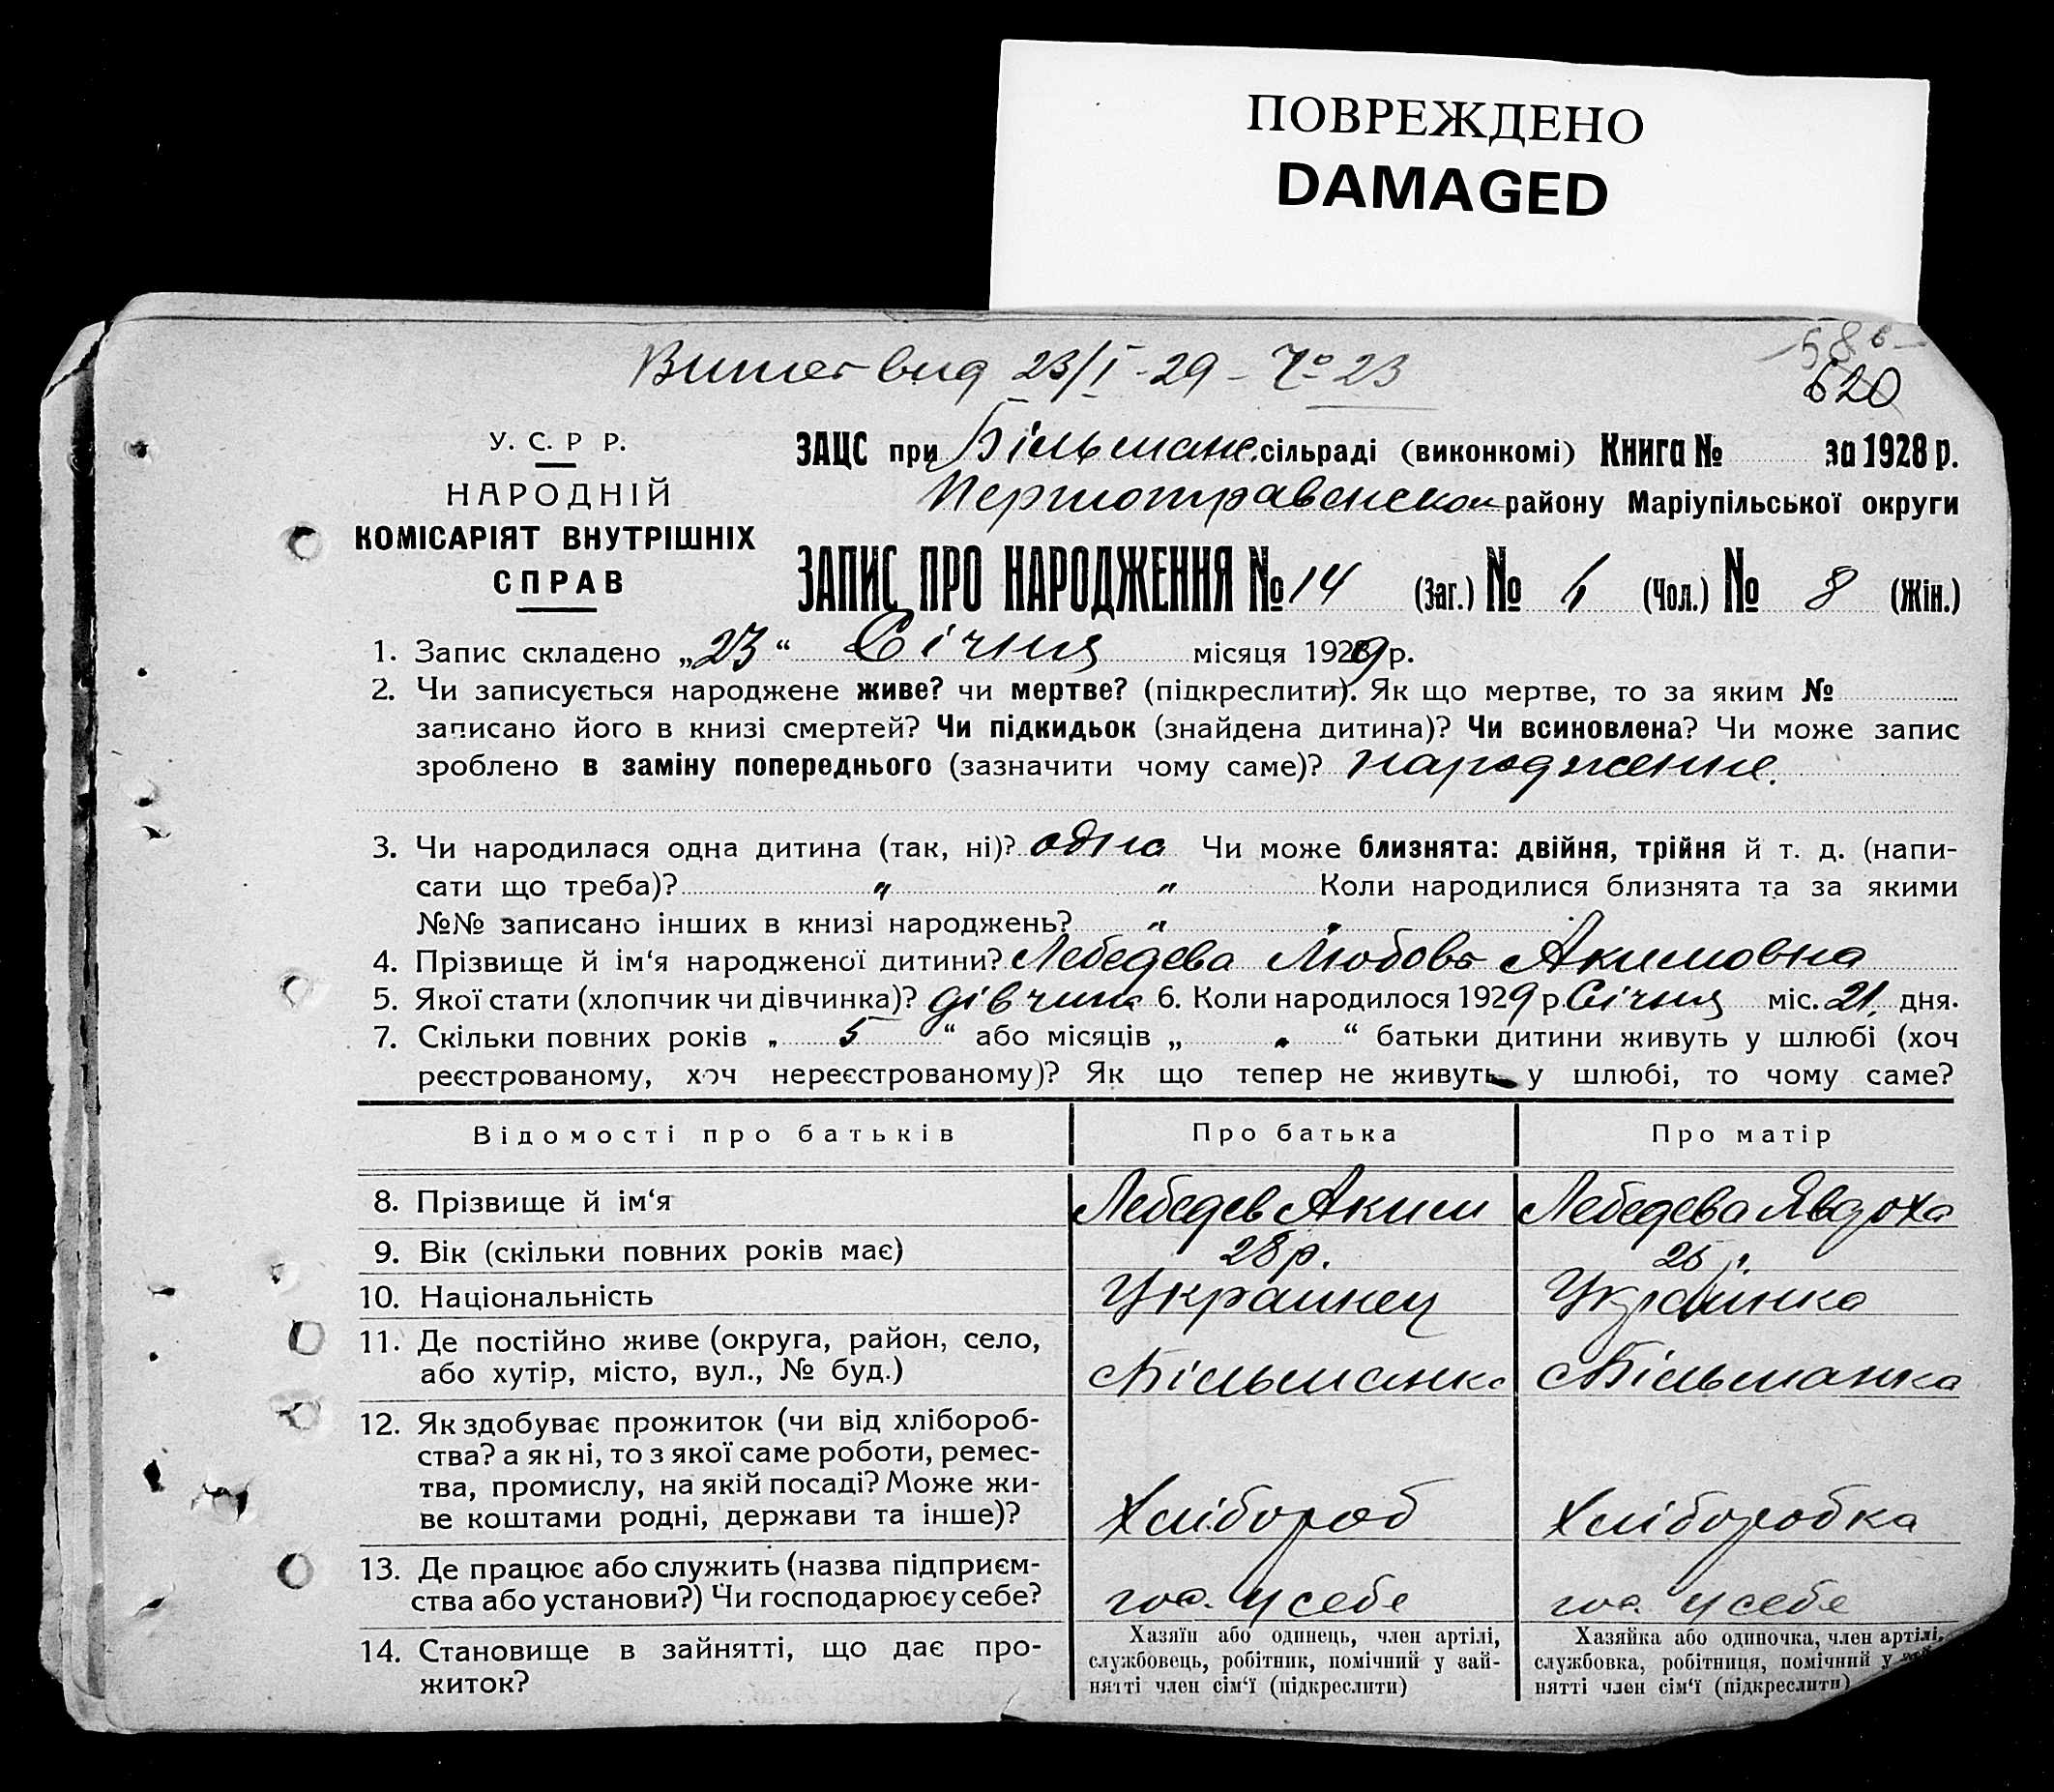 ПОВРЕЖДЕНО
DAMAGED
23/I - 29 - № 23
586
620
У. С. Р Р.
НАРОДНІЙ
КОМІСАРІЯТ ВНУТРІШНІХ
СПРАВ
ЗАЦС при Більманс. сільраді (виконкомі) Книга № за 1928 р.
Першотравенсков району Маріупільської округи
ЗАПИС ПРО НАРОДЖЕННЯ № 14 (Заг.) № 6 (Чол.) № 8 (Жін.)
1. Запис складено „23“ Січня місяця 1929 р.
2. Чи записується народжене живе? чи мертве? (підкреслити). Як що мертве, то за яким №
записано його в книзі смертей? Чи підкидьок (знайдена дитина)? Чи всиновлена? Чи може запис
зроблено в заміну попереднього (зазначити чому саме)? народження.
3. Чи народилася одна дитина (так, ні)? одна Чи може близнята: двійня, трійня й т. д. (напи-
сати що треба)? „ „ Коли народилися близнята та за якими
№№ записано інших в книзі народжень? „ „
4. Прізвище й ім‘я народженої дитини? Лебедева Любовь Акимовна
5. Якої стати (хлопчик чи дівчинка)? дівчина 6. Коли народилося 1929 р. Січня міс. 21. дня.
7. Скільки повних років „ 5 “ або місяців „ „ “ батьки дитини живуть у шлюбі (хоч
реєстрованому, хоч нереєстрованому)? Як що тепер не живуть у шлюбі, то чому саме?
Відомості про батьків Про батька Про матір
8. Прізвище й ім‘я Лебедев Аким Лебедева Явдоха
9. Вік (скільки повних років має) 28 р. 25 р.
10. Національність Украинец Украінка
11. Де постійно живе (округа, район, село,
або хутір, місто, вул., № буд.) с Більманка с Більманка
12. Як здобуває прожиток (чи від хлібороб-
ства? а як ні, то з якої саме роботи, ремес-
тва, промислу, на якій посаді? Може жи-
ве коштами родні, держави та інше)? Хлібороб Хліборобка
13. Де працює або служить (назва підприєм-
ства або установи?) Чи господарює у себе? гос. у себе гос. у себе
14. Становище в зайнятті, що дає про-
житок?
Хазяїн або одинець, член артілі,
службовець, робітник, помічний у зай-
нятті член сім‘ї (підкреслити)
Хазяйка або одиночка, член артілі,
службовка, робітниця, помічний у
нятті член сім‘ї (підкреслити)